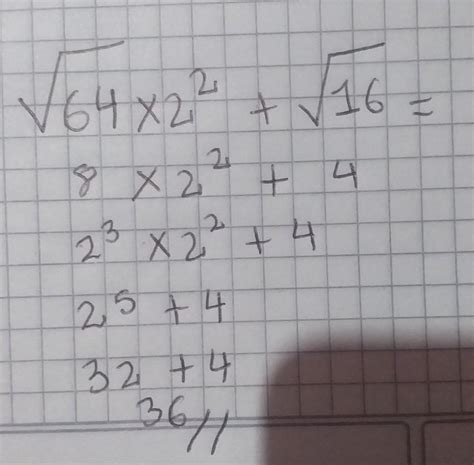 √64 × 2² + √16 =
8 × 2² + 4
2³ × 2² + 4
2⁵ + 4
32 + 4
36 //